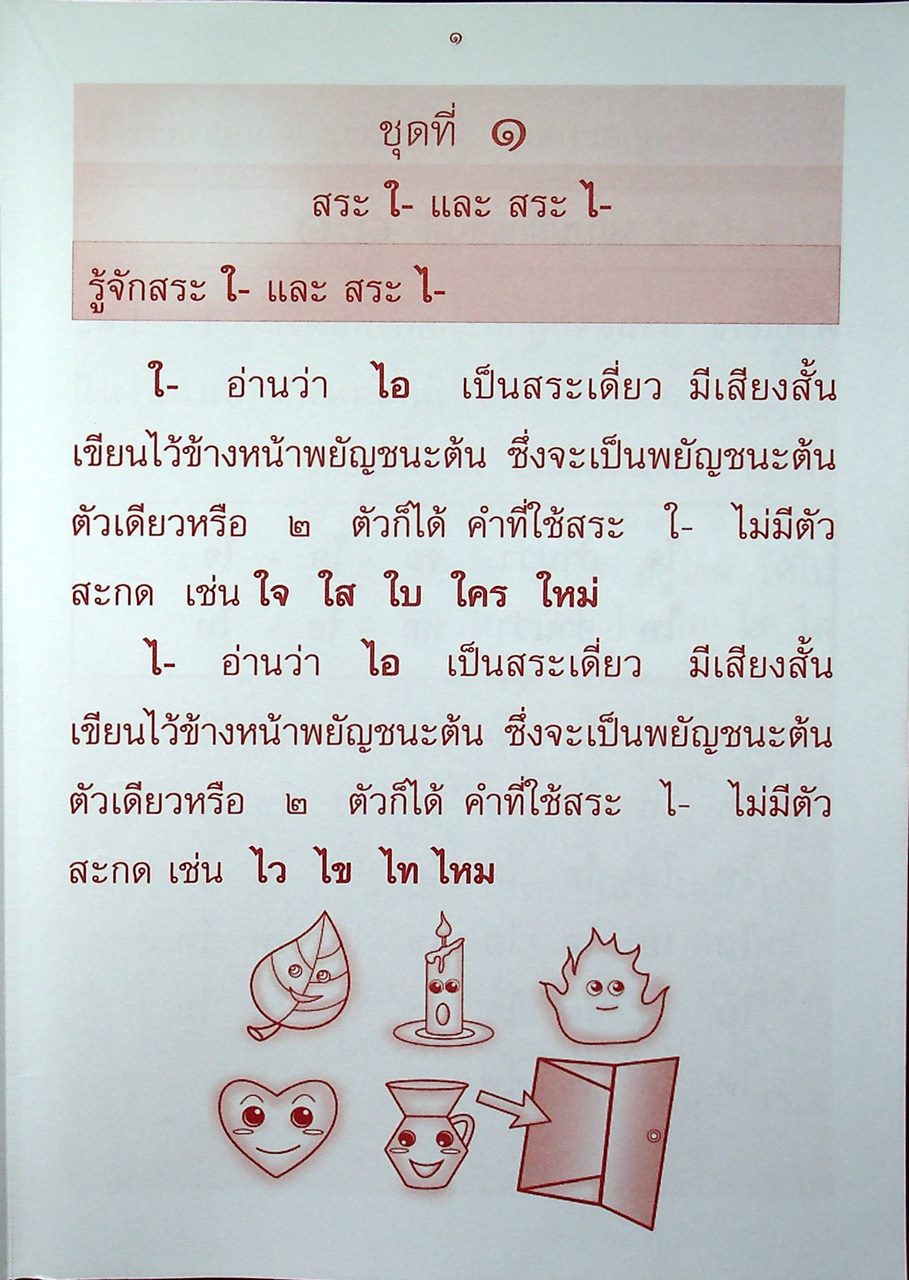 ๑
ชุดที่ ๑
สระ ใ- และ สระ ไ-
รู้จักสระ ใ- และ สระ ไ-
ใ- อ่านว่า ไอ เป็นสระเดี่ยว มีเสียงสั้น
เขียนไว้ข้างหน้าพยัญชนะต้น ซึ่งจะเป็นพยัญชนะต้น
ตัวเดียวหรือ ๒ ตัวก็ได้ คำที่ใช้สระ ใ- ไม่มีตัว
สะกด เช่น ใจ ใส ใบ ใคร ใหม่
ไ- อ่านว่า ไอ เป็นสระเดี่ยว มีเสียงสั้น
เขียนไว้ข้างหน้าพยัญชนะต้น ซึ่งจะเป็นพยัญชนะต้น
ตัวเดียวหรือ ๒ ตัวก็ได้ คำที่ใช้สระ ไ- ไม่มีตัว
สะกด เช่น ไว ไข ไท ไหม